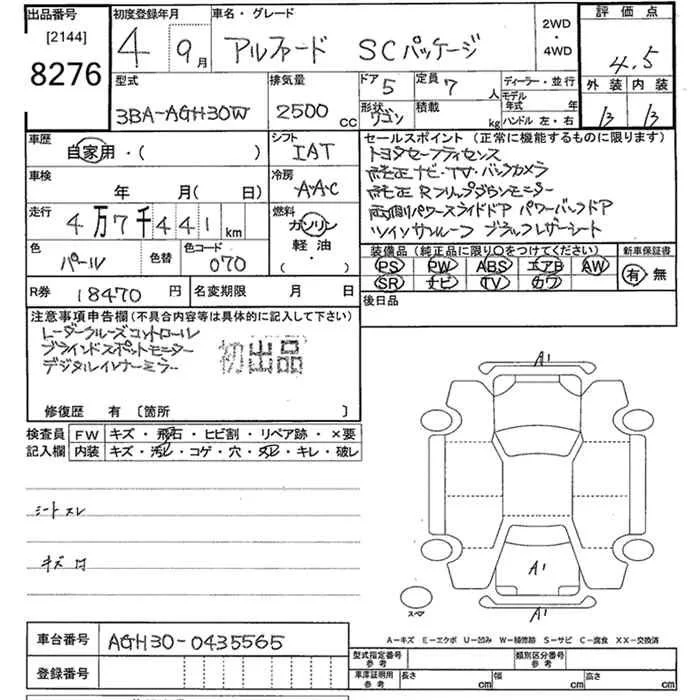 出品番号
[2144]
8276
初度登録年月
4 9月
車名・グレード
アルファード SCパッケージ
2WD
・
4WD
評価点
4.5
型式
3BA-AGH30W
排気量
2500 CC
ドア 5
定員 7 人
形状 ワゴン
積載 kg
ディーラー・並行
モデル年式 年
ハンドル 左・右
外装 内装
B B
車歴
自家用・( )
シフト
IAT
車検
年 月( 日)
冷房
AAC
走行
4万7千441 km
燃料
ガソリン
軽油
( ・ )
色
パール
色替
色コード
070
セールスポイント(正常に機能するものに限ります)
トヨタセーフティセンス
純正ナビ・TV・バックカメラ
純正Rフリップダウンモニター
両側パワースライドドア パワーバックドア
ツインサンルーフ ブラックレザーシート
装備品(純正品に限り〇をつけてください)
新車保証書
PS PW ABS エアB AW
SR ナビ TV カワ
有・無
R券 18470 円
名変期限 月 日
後日品
注意事項申告欄(不具合内容等は具体的に記入して下さい)
レーダークルーズコントロール
ブラインドスポットモニター
デジタルインナーミラー
初出品
修復歴 有 〔箇所 〕
検査員記入欄
FW キズ・飛石・ヒビ割・リペア跡・×要
内装 キズ・汚レ・コゲ・穴・スレ・キレ・破レ
シートスレ
キズ
A1
A1
A1
スペア
A-キズ E-エクボ U-凹み W-補修跡 S-サビ C-腐食 XX-交換済
車台番号 AGH30-0435565
登録番号
型式指定番号 参考
類別区分番号 参考
車庫証明用 参考
長さ cm 幅 cm 高さ cm